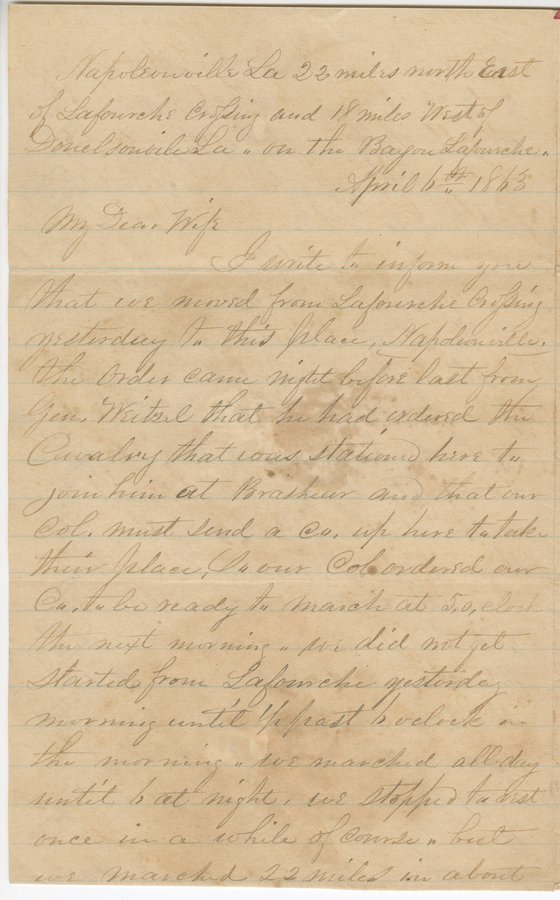 Napoleonville La 22 miles north East
of Lafourche Crossing and 18 miles West of
Donelsonvile La " on the Bayou Lafourche "
April 6th 1863
My Dear Wife
I write to inform you
that we moved from Lafourche Crossing
yesterday to this place, Napoleonville.
the Order came night before last from
Gen. Weitzel that he had ordered the
Cavalry that was stationed here to
join him at Brashear and that our
Col. must send a Co. up here to take
their place, So our Col ordered our
Co. to be ready to march at 5,o,clock
the next morning " we did not get
started from Lafourche yesterday
morning until past 6 oclock in
the morning " we marched all day
until 6 at night, we stopped to rest
once in a while of course " but
we marched 22 miles in about